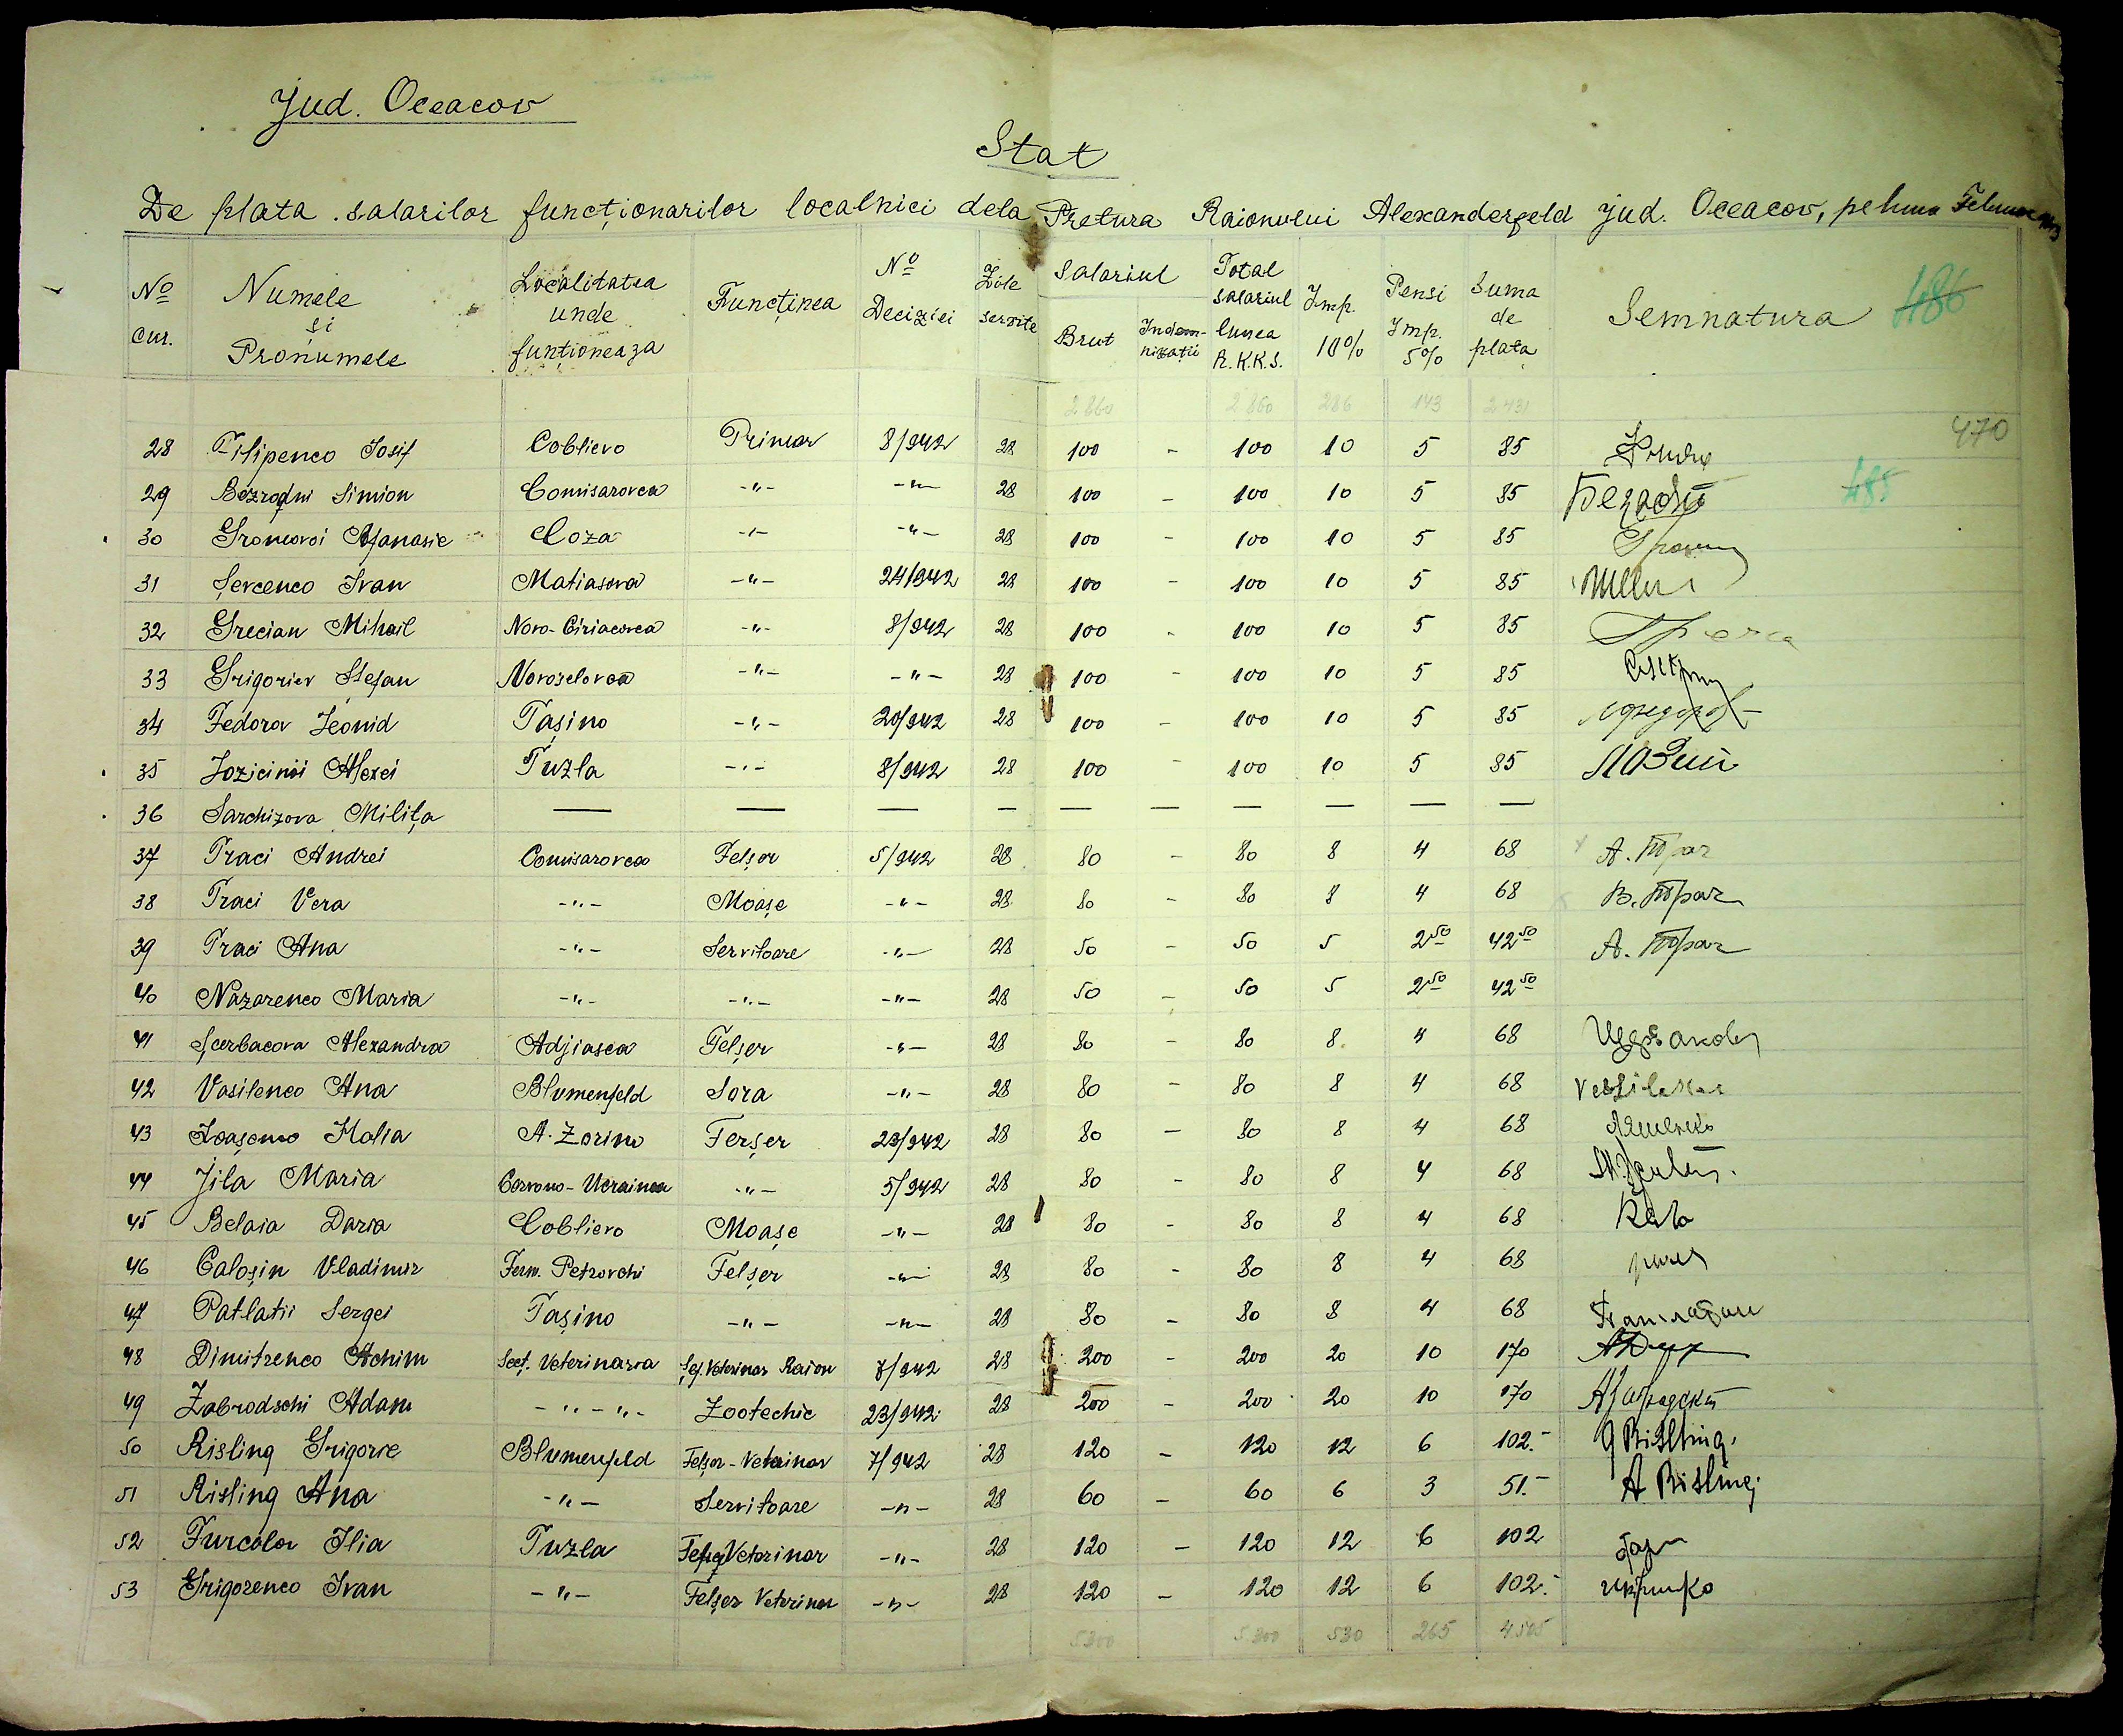 Jud. Oceacov
Stat
De plata salarilor funcționarilor localnici dela Pretura Raionului Alexanderfeld jud. Oceacov, pe luna
No cur. Numele și Pronumele Localitatea unde funționeaza Funcținea No Deciziei Zile servite Salariul Brut Indemnizații Total salariul lunea R.K.K.S. Imp. 10% Pensi Imp. 5% Suma de plata Semnatura 486
2860 2860 286 143 2431
470
28 Filipenco Iosif Coblievo Primar 8/942 28 100 - 100 10 5 85
29 Bezrodni Simion Comisarovca -"- -"- 28 100 - 100 10 5 85 485
30 Gromovoi Afanasie Coza -"- -"- 28 100 - 100 10 5 85
31 Șevcenco Ivan Matiasova -"- 24/942 28 100 - 100 10 5 85
32 Grecian Mihail Novo-Ciriacovca -"- 8/942 28 100 - 100 10 5 85
33 Grigoriev Stefan Novoselovca -"- -"- 28 100 - 100 10 5 85
34 Fedorov Leonid Tașino -"- 20/942 28 100 - 100 10 5 85
35 Lozicinii Alexei Tuzla -"- 8/942 28 100 - 100 10 5 85
36 Sarchizova Milița — — — — — — — — — —
37 Traci Andrei Comisarovca Felșer 5/942 28 80 - 80 8 4 68 А. Трач
38 Traci Vera -"- Moașe -"- 28 80 - 80 8 4 68 В. Трач
39 Traci Ana -"- Servitoare -"- 28 50 - 50 5 2 50 42 50 А. Трач
40 Nazarenco Maria -"- -"- -"- 28 50 - 50 5 2 50 42 50
41 Șcerbacova Alexandra Adjiasca Felșer -"- 28 80 - 80 8 4 68
42 Vasilenco Ana Blumenfeld Sora -"- 28 80 - 80 8 4 68
43 A. Zorino Ferșer 23/942 28 80 - 80 8 4 68
44 Jila Maria Cervono-Ucrainca -"- 5/942 28 80 - 80 8 4 68
45 Belaia Daria Coblievo Moașe -"- 28 80 - 80 8 4 68
46 Caloșin Vladimir Ferm. Petrovchi Felșer -"- 28 80 - 80 8 4 68
47 Patlatii Sergei Tașino -"- -"- 28 80 - 80 8 4 68
48 Dimitrenco Achim Secț. Veterinara Șef. Veterinar Raion 7/942 28 200 - 200 20 10 170
49 Zabrodschi Adam -"-"- Zootechic 23/942 28 200 - 200 20 10 170
50 Risling Grigore Blumenfeld Felșer-Veterinar 7/942 28 120 - 120 12 6 102.- G Risling.
51 Risling Ana -"- Servitoare -"- 28 60 - 60 6 3 51.- A Risling
52 Furcalov Ilia Tuzla Felșer Veterinar -"- 28 120 - 120 12 6 102
53 Grigorenco Ivan -"- Felșer Veterinar -"- 28 120 - 120 12 6 102.-
5300 5300 530 265 4505